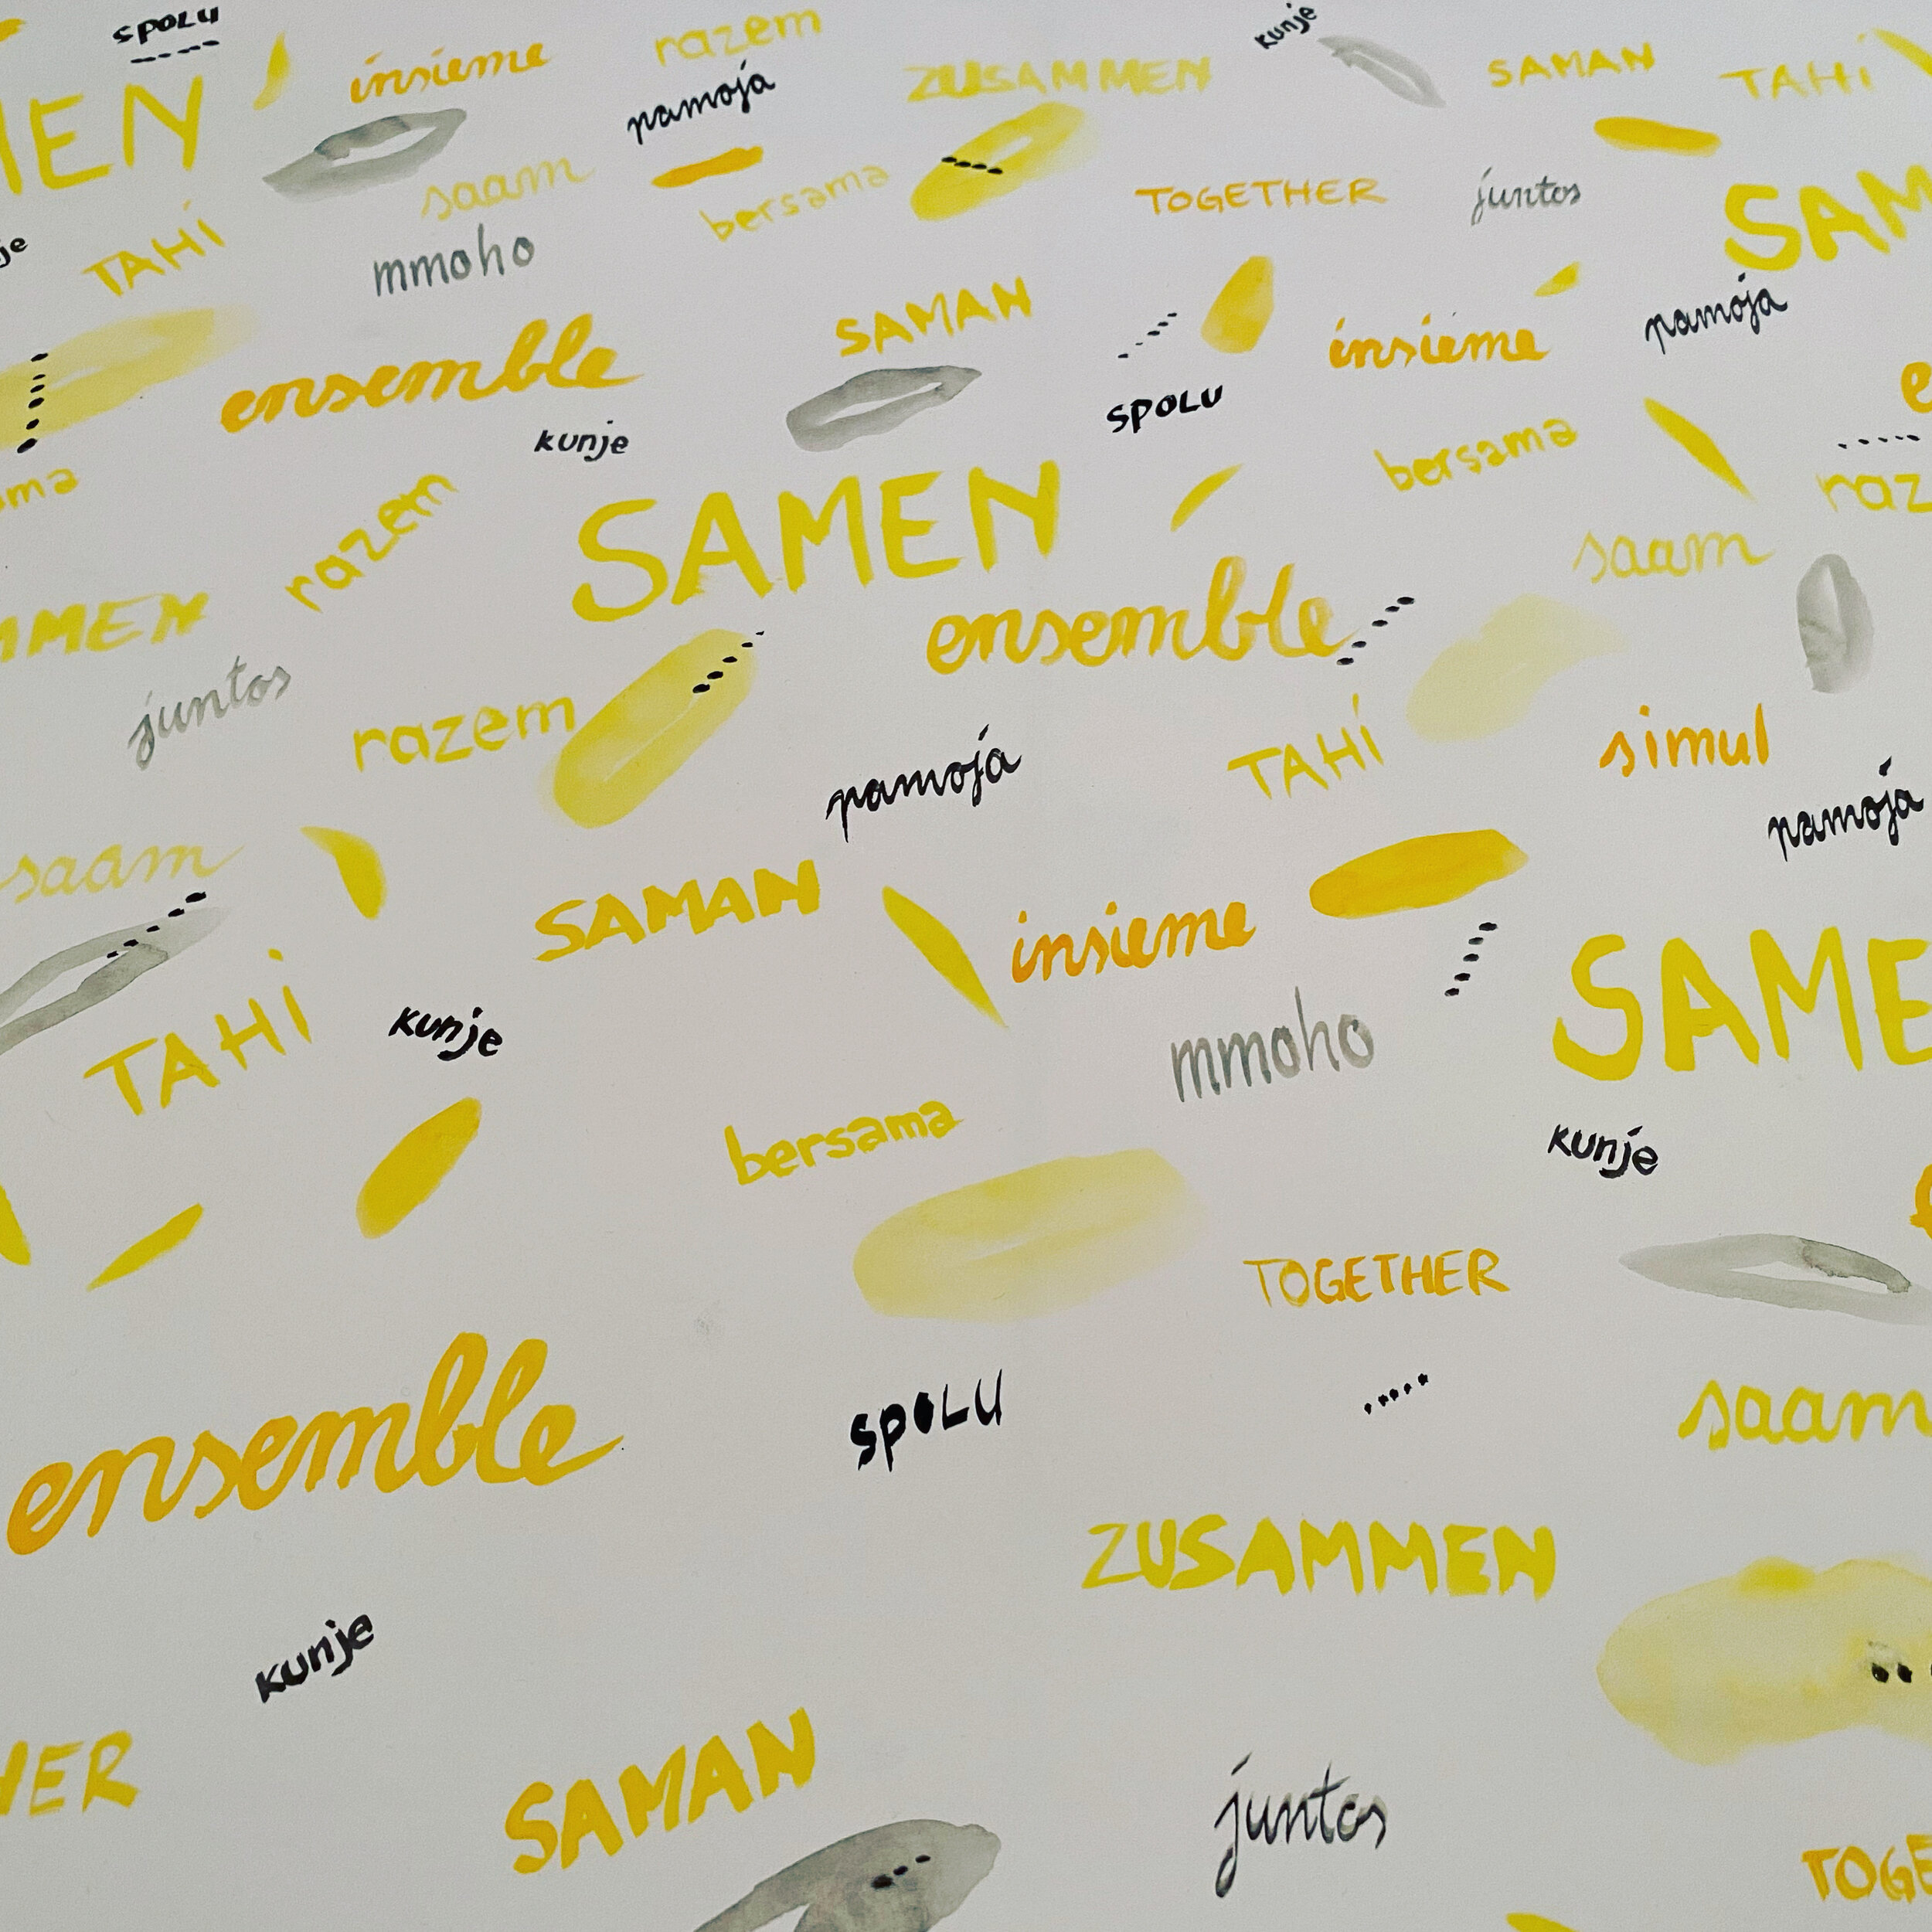 spolu
insieme
razem
kunje
ZUSAMMEN
SAMAN
TAHi
EN
pamoja
saam
bersama
TOGETHER
juntos
SAM
TAHi
mmoho
je
SAMAN
insieme
pamoja
ensemble
spolu
kunje
bersama
e
ma
razem
SAMEN
raz
saam
MMEN
ensemble
juntos
razem
TAHi
simul
pamoja
pamoja
saam
SAMAN
insieme
SAME
TAHi
kunje
mmoho
bersama
kunje
TOGETHER
ensemble
spolu
saam
ZUSAMMEN
kunje
HER
SAMAN
juntos
TOGE